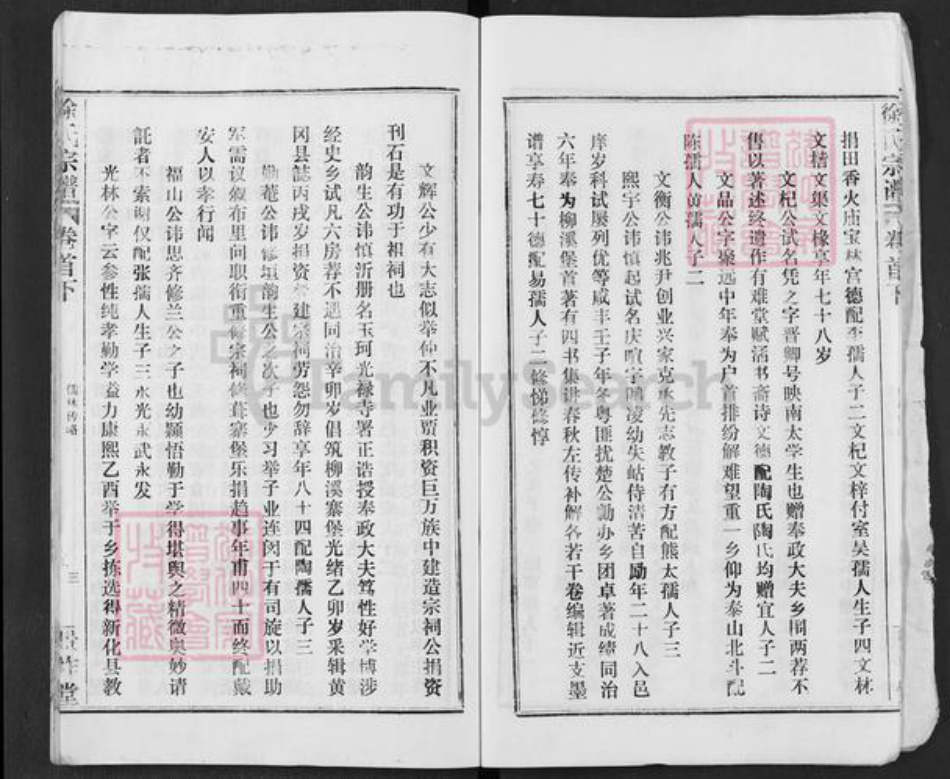 捐田香火庙宝林宫德配李孺人子二文杞文梓付室吴孺人生子四文林
文楷文渠文椽享年七十八岁
文杞公试名凭之字晋卿号映南太学生也赠奉政大夫乡闱两荐不
售以著述终遗作有难堂赋涵书斋诗文德配陶氏陶氏均赠宜人子二
文品公字聚远中年奉为户首排纷解难望重一乡仰为泰山北斗配
陈孺人黄孺人子二
文衡公讳兆尹创业兴家克承先志教子有方配熊太孺人子三
熙宇公讳慎起试名庆喧字鸣凌幼失岵侍清苦自励年二十八入邑
庠岁科试屡列优等咸丰壬子年冬粤匪扰楚公勷办乡团卓著成绩同治
六年奉为柳溪堡首著有四书集讲春秋左传补解各若干卷编辑近支墨
谱享寿七十德配易孺人子二修悌修惇
徐氏宗谱 卷首下
文辉公少有大志似举仲不凡业贾积资巨万族中建造宗祠公捐资
刊石是有功于祖祠也
韵生公讳慎沂册名玉珂光禄寺署正诰授奉政大夫笃性好学博涉
经史乡试凡六房荐不遇同治辛卯岁倡筑柳溪寨堡光绪乙卯岁采辑黄
冈县誌丙戌岁捐资 建宗祠劳怨勿辞享年八十四配陶孺人子三
勤菴公讳修埙韵生公之次子也少习举子业连困于有司旋以捐助
军需议叙布里问职衔重修宗祠修葺寨堡乐捐趋事年甫四十而终配戴
安人以孝行闻
福山公讳思齐修兰公之子也幼颖悟勤于学得堪舆之精微奥妙请
託者不索谢仅配张孺人生子三永光永武永发
光林公字云参性纯孝勤学益力康熙乙酉举于乡拣选得新化县教
徐氏宗谱 卷首下
儒林传略
三
堂